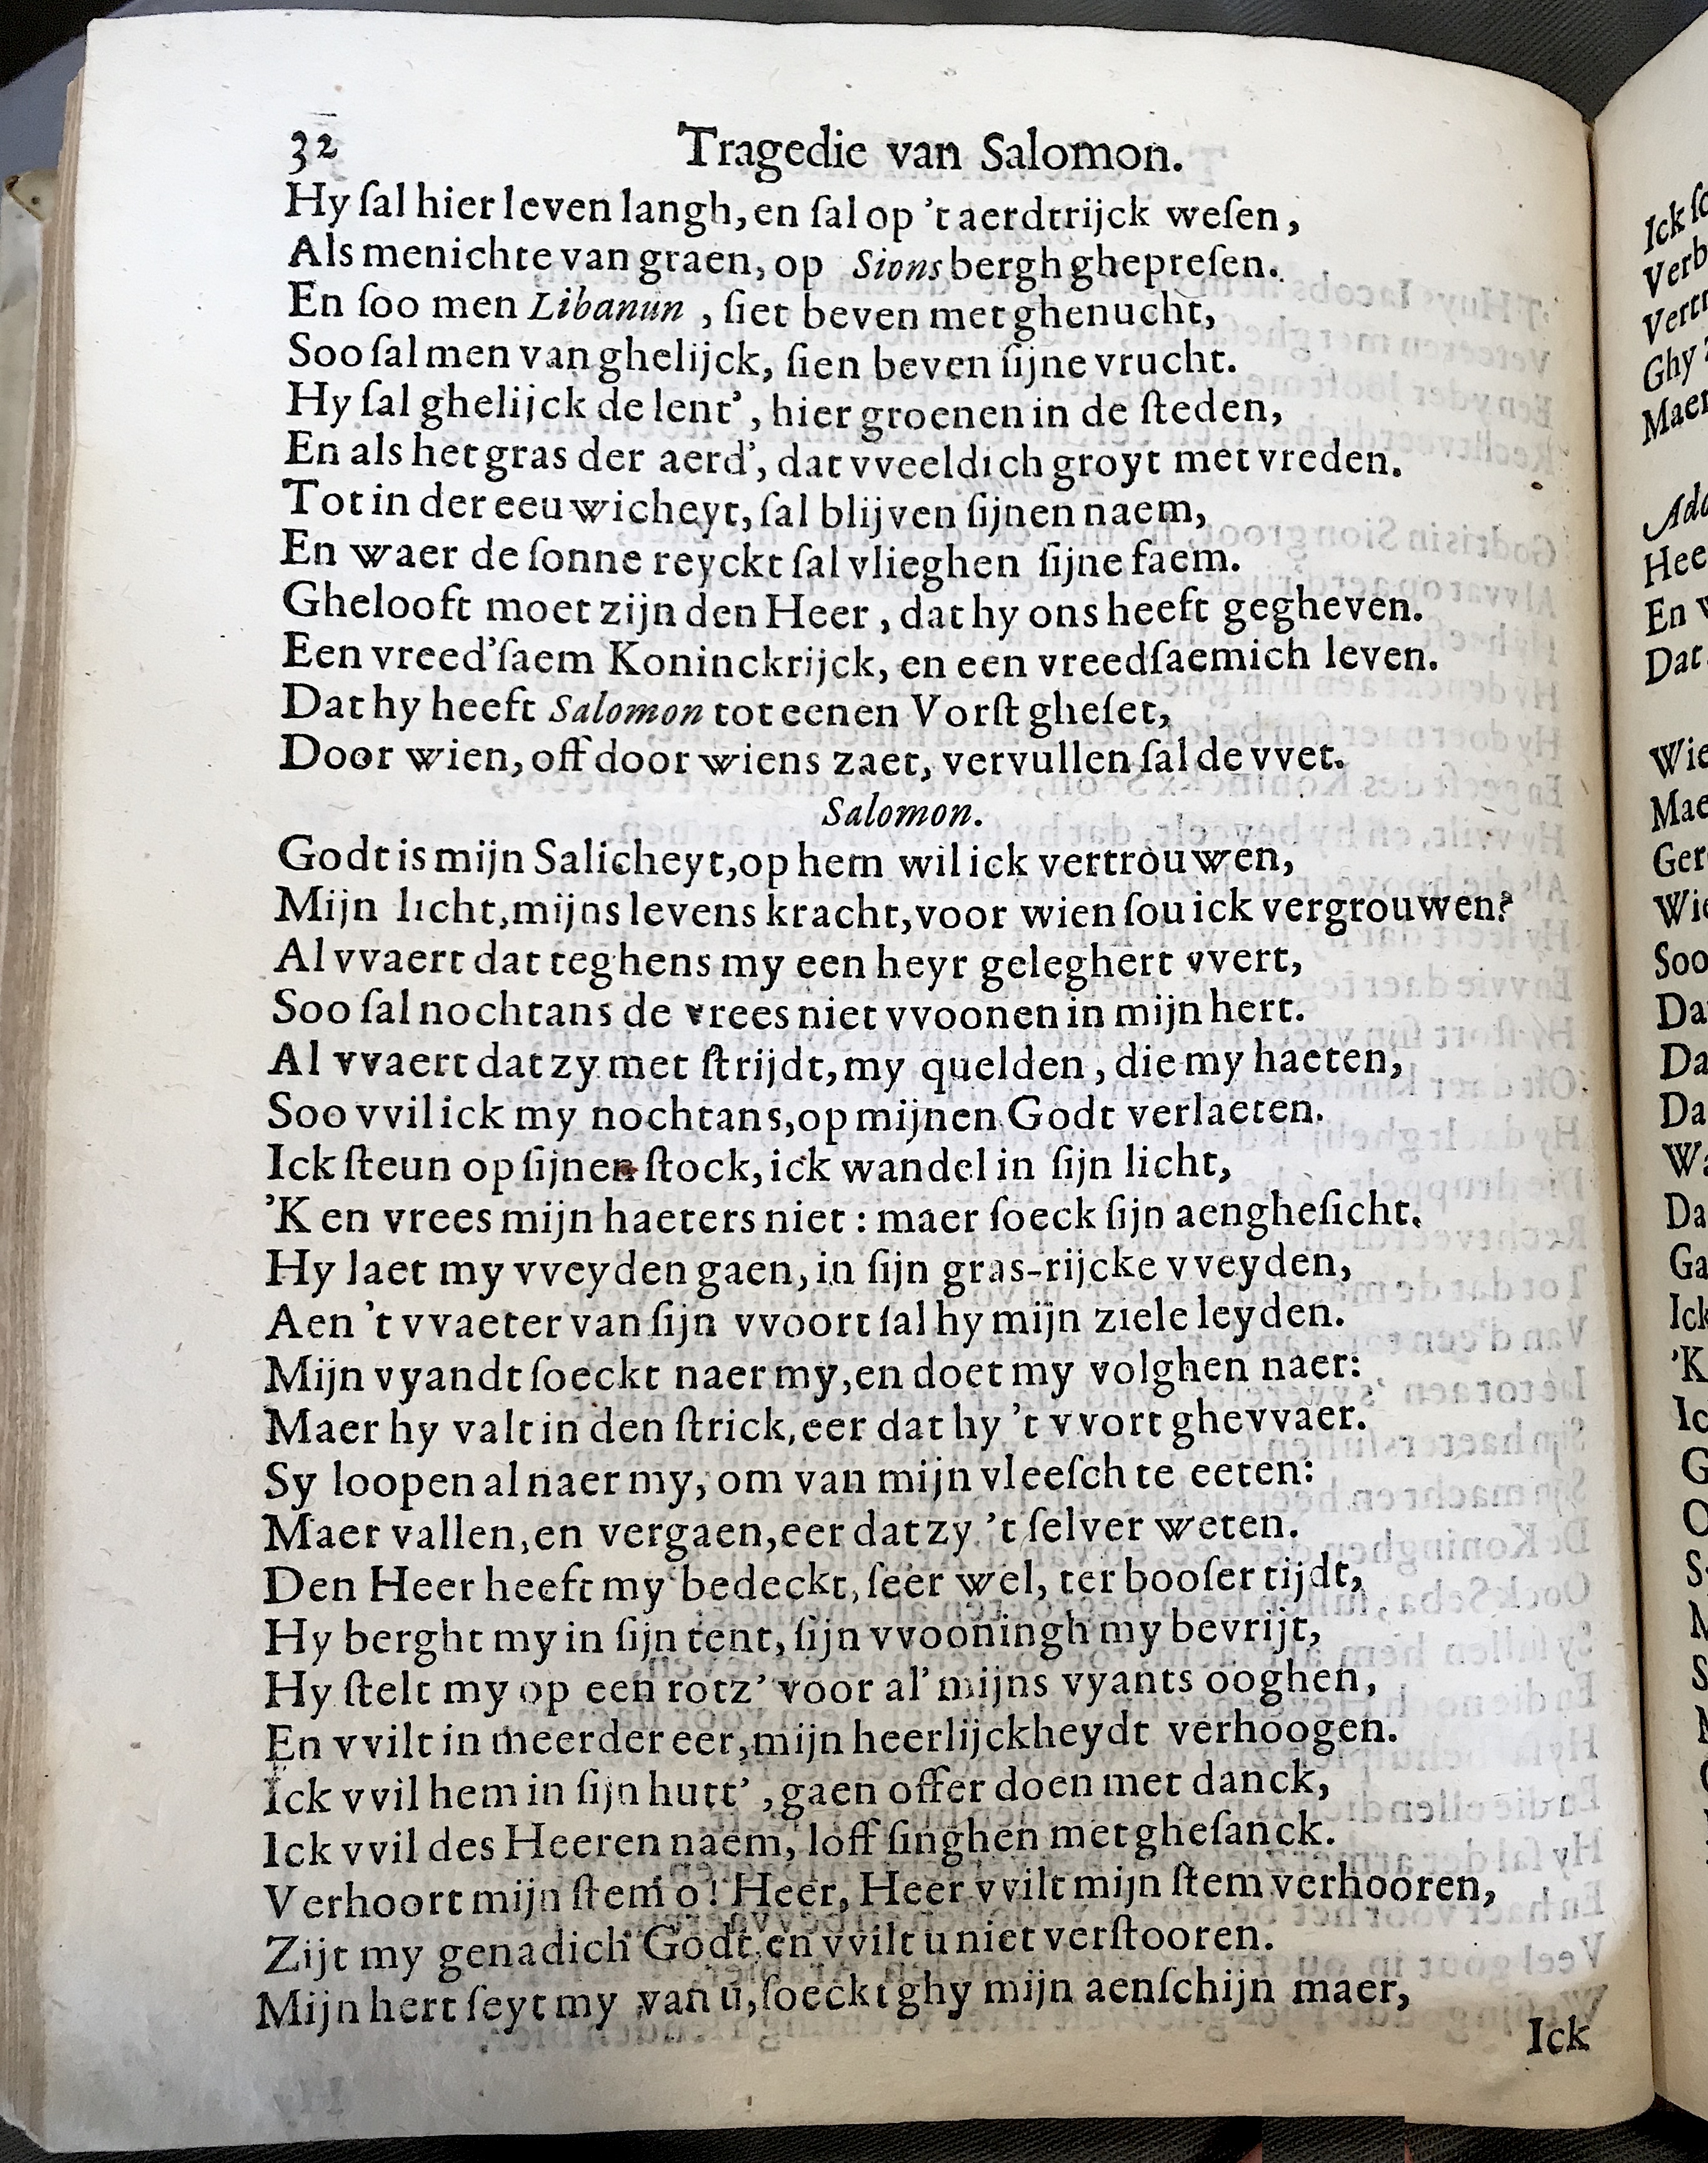 32 Tragedie van Salomon.
Hy ſal hier leven langh, en ſal op 't aerdtrijck weſen,
Als menichte van graen, op Sions bergh ghepreſen.
En ſoo men Libanun, ſiet beven met ghenucht,
Soo ſal men van ghelijck, ſien beven ſijne vrucht.
Hy ſal ghelijck de lent', hier groenen in de ſteden,
En als het gras der aerd', dat vveeldich groyt met vreden.
Tot in der eeuwicheyt, ſal blijven ſijnen naem,
En waer de ſonne reyckt ſal vlieghen ſijne faem.
Ghelooft moet zijn den Heer, dat hy ons heeft gegheven.
Een vreed'ſaem Koninckrijck, en een vreedſaemich leven.
Dat hy heeft Salomon tot eenen Vorſt gheſet,
Door wien, off door wiens zaet, vervullen ſal de vvet.
Salomon.
Godt is mijn Salicheyt, op hem wil ick vertrouwen,
Mijn licht, mijns levens kracht, voor wien ſou ick vergrouwen?
Al vvaert dat teghens my een heyr geleghert vvert,
Soo ſal nochtans de vrees niet vvoonen in mijn hert.
Al vvaert dat zy met ſtrijdt, my quelden, die my haeten,
Soo vvil ick my nochtans, op mijnen Godt verlaeten.
Ick ſteun op ſijnen ſtock, ick wandel in ſijn licht,
'K en vrees mijn haeters niet: maer ſoeck ſijn aengheſicht.
Hy laet my vveyden gaen, in ſijn gras-rijcke vveyden,
Aen 't vvaeter van ſijn vvoort ſal hy mijn ziele leyden.
Mijn vyandt ſoeckt naer my, en doet my volghen naer:
Maer hy valt in den ſtrick, eer dat hy 't vvort ghevvaer.
Sy loopen al naer my, om van mijn vleeſch te eeten:
Maer vallen, en vergaen, eer dat zy 't ſelver weten.
Den Heer heeft my bedeckt, ſeer wel, ter booſer tijdt,
Hy berght my in ſijn tent, ſijn vvooningh my bevrijt,
Hy ſtelt my op een rotz' voor al' mijns vyants ooghen,
En vvilt in meerder eer, mijn heerlijckheydt verhoogen.
Ick vvil hem in ſijn hutt', gaen offer doen met danck,
Ick vvil des Heeren naem, loff ſinghen met gheſanck.
Verhoort mijn ſtem o! Heer, Heer vvilt mijn ſtem verhooren,
Zijt my genadich Godt, en vvilt u niet verſtooren.
Mijn hert ſeyt my van u, ſoeckt ghy mijn aenſchijn maer,
Ick